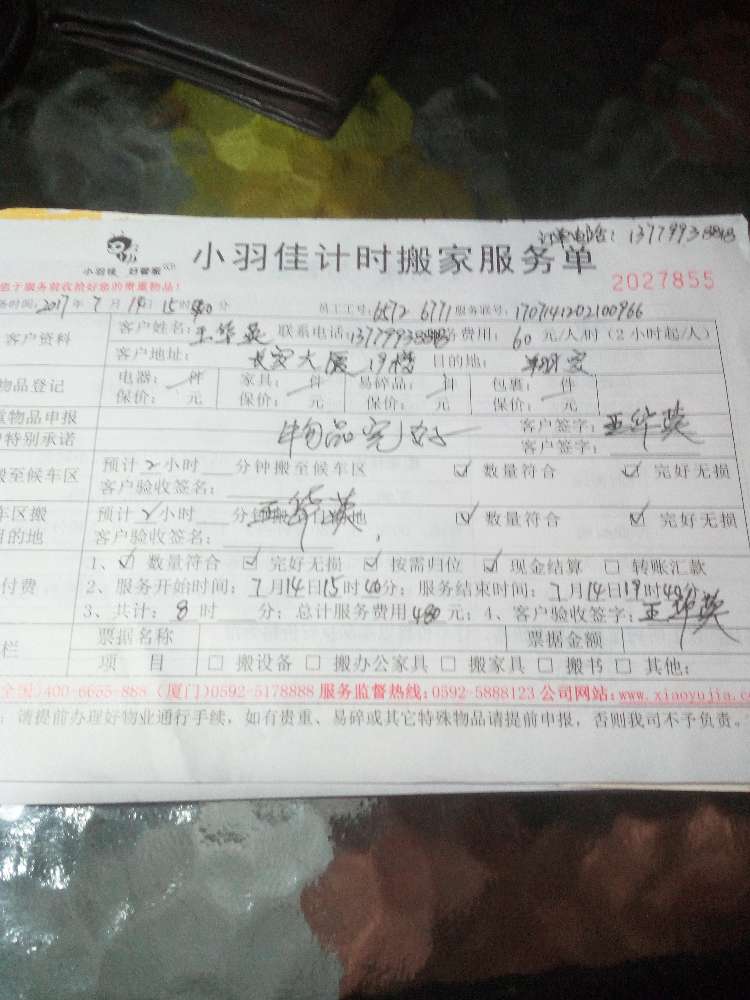 订单电话：
小羽佳 好管家
小羽佳计时搬家服务单
2027855
您于服务前收拾好您的贵重物品！
务时间：2017年7月14日15时40分 员工工号：6572 6771 服务联号：1707141202100966
客户资料 客户姓名：王华英 联系电话： 服务费用：60元/人/时（2小时起/人）
客户地址：长安大厦19楼 目的地：翔安
物品登记 电器： 件 家具： 件 易碎品： 件 包裹： 件
保价： 元 保价： 元 保价： 元 保价： 元
重物品申报 物品完好 客户签字：王华英
特别承诺 客户签字：
搬至候车区 预计2小时 分钟搬至候车区 ☑ 数量符合 ☑ 完好无损
客户验收签名：
车区搬 预计2小时 分钟搬 地 ☑ 数量符合 ☑ 完好无损
目的地 客户验收签名：王华英
1、☑ 数量符合 ☑ 完好无损 ☑ 按需归位 ☑ 现金结算 □ 转账汇款
付费 2、服务开始时间：7月14日15时40分；服务结束时间：7月14日19时40分
3、共计：8时 分；总计服务费用480元；4、客户验收签字：王华英
栏 票据名称 票据金额
项 目 □ 搬设备 □ 搬办公家具 □ 搬家具 □ 搬书 □ 其他：
全国）400-6655-888（厦门）0592-5178888 服务监督热线：0592-5888123 公司网站：www.xiaoyujia.co
：请提前办理好物业通行手续，如有贵重、易碎或其它特殊物品请提前申报，否则我司不予负责。